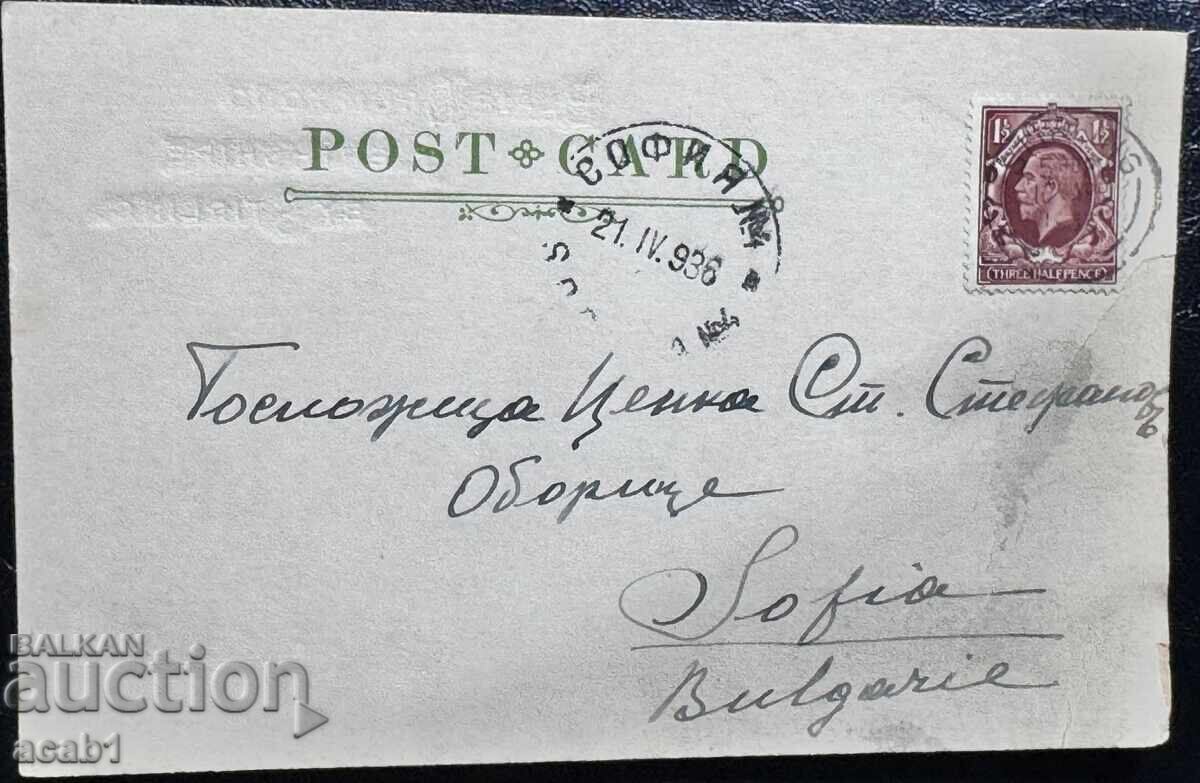 POST CARD
1½ 1½
THREE HALFPENCE
СОФИЯ №4
21.IV.936
Госпожица Ценка Ст. Стефанова
Оборище 
Sofia
Bulgarie
BALKAN
auction
acab1